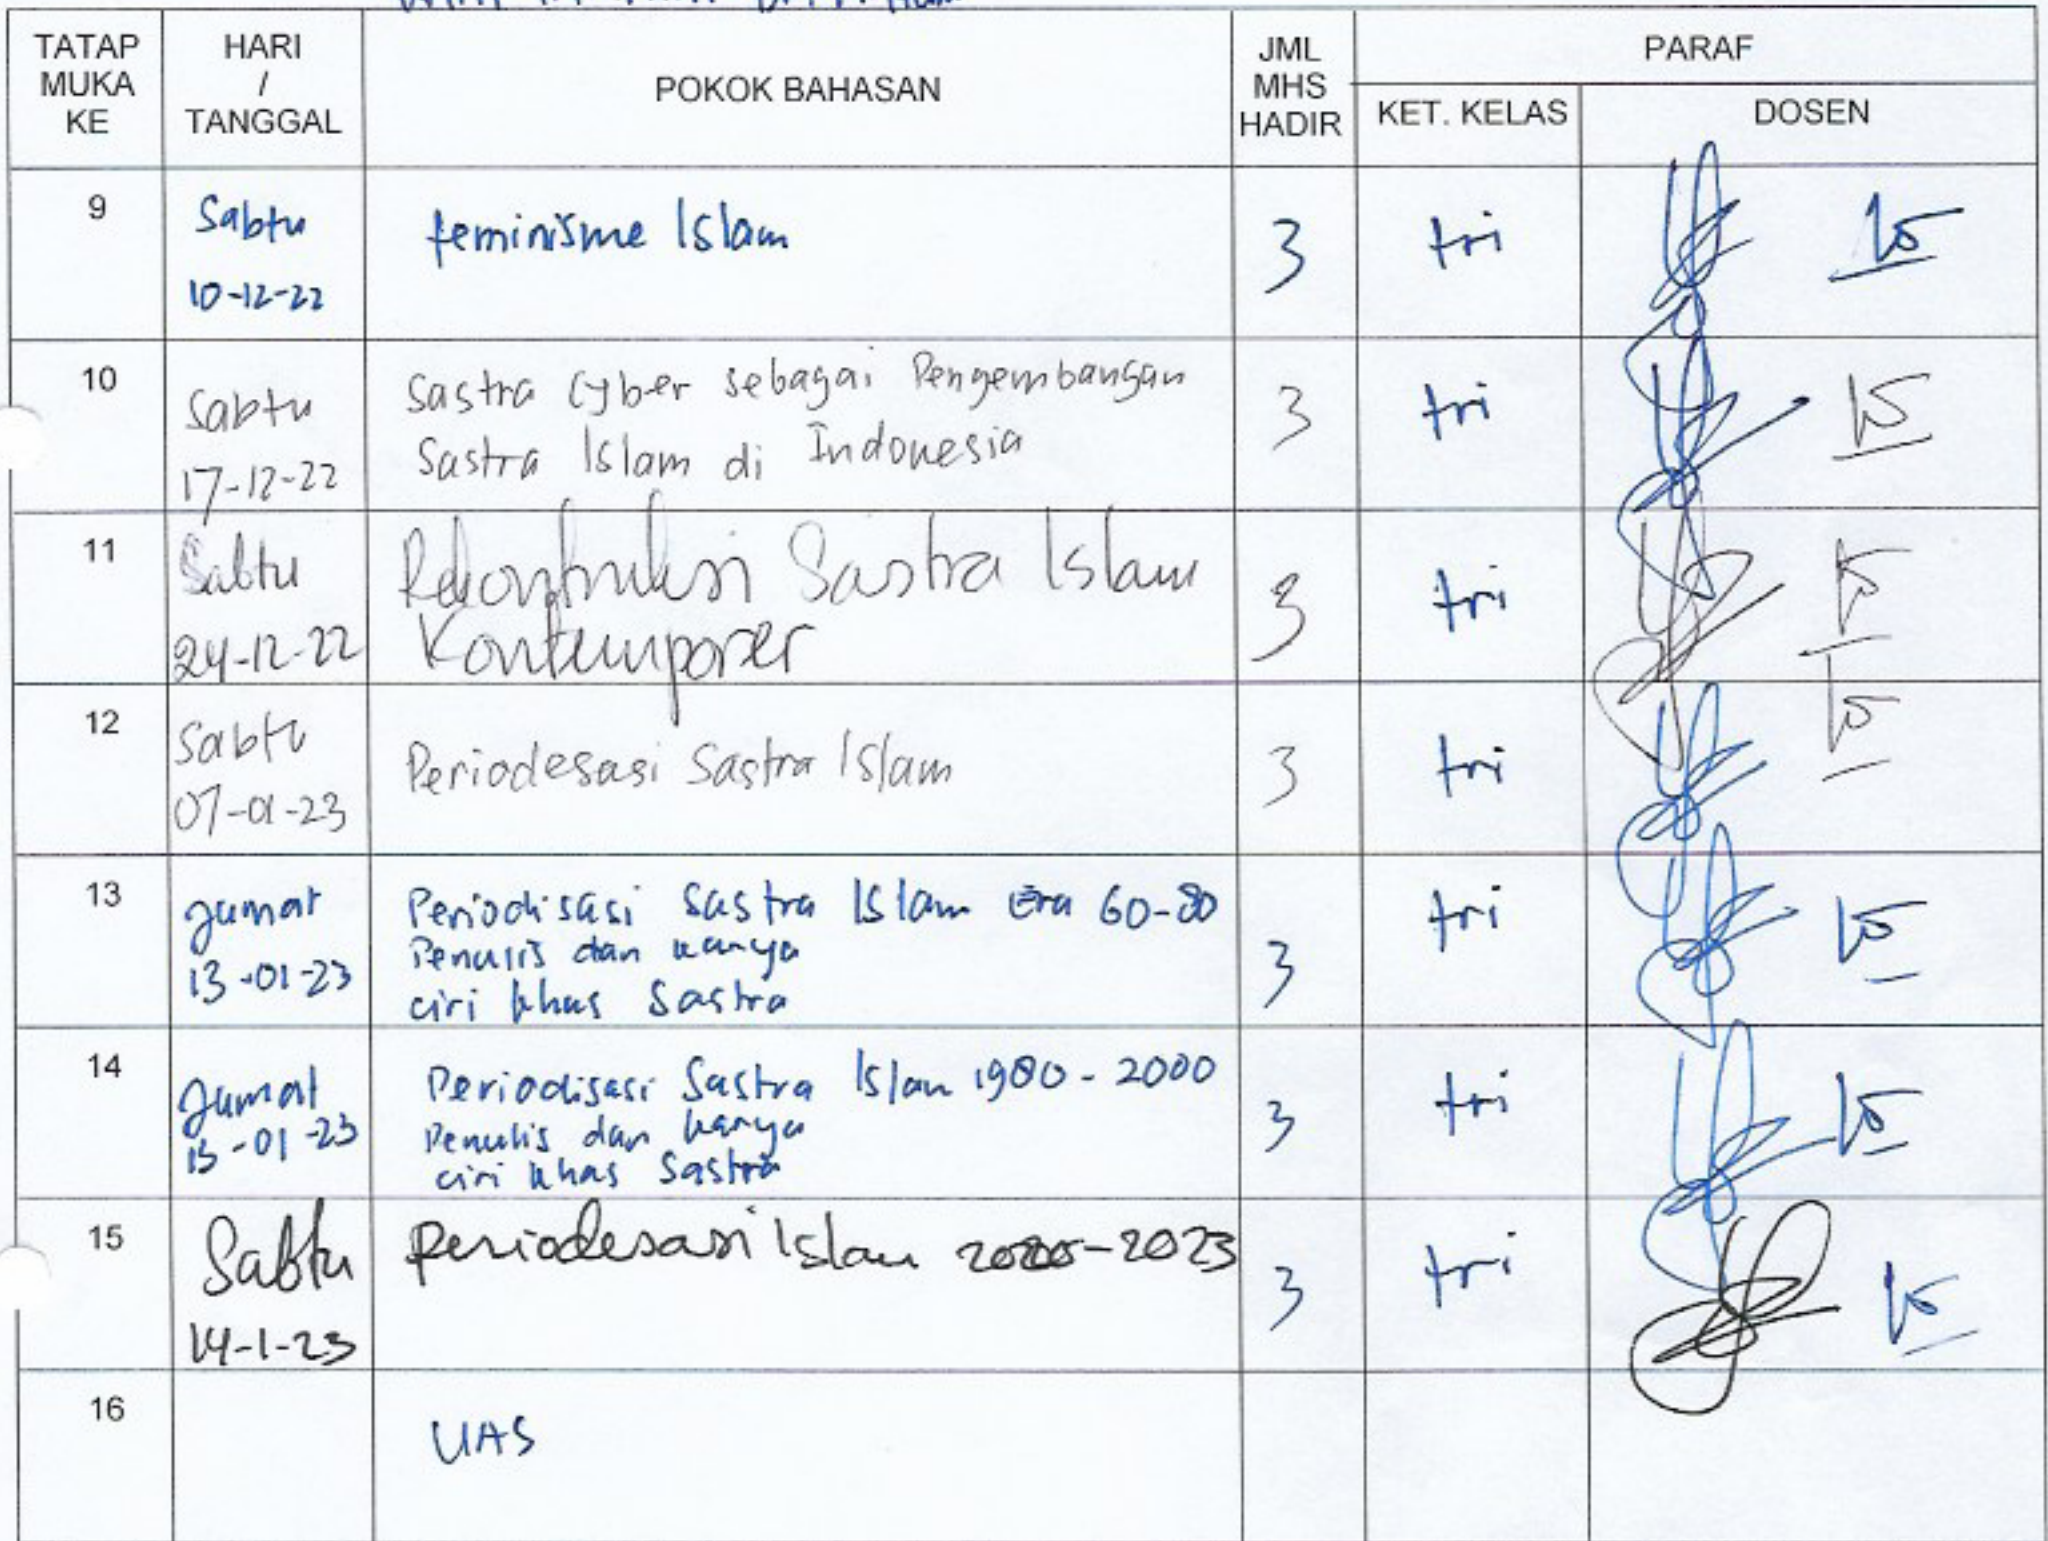 TATAP MUKA KE HARI / TANGGAL POKOK BAHASAN JML MHS HADIR PARAF
KET. KELAS DOSEN
9 Sabtu 10-12-22 feminisme Islam 3 tri
10 Sabtu 17-12-22 Sastra Cyber sebagai Pengembangan
Sastra Islam di Indonesia 3 tri
11 Sabtu 24-12-22 Rekontruksi Sastra Islam
Kontemporer 3 tri
12 Sabtu 07-01-23 Periodesasi Sastra Islam 3 tri
13 Jumat 13-01-23 Periodisasi Sastra Islam Era 60-80
Penulis dan karya
ciri khas Sastra 3 tri
14 Jumat 13-01-23 Periodisasi Sastra Islam 1980 - 2000
Penulis dan karya
ciri khas Sastra 3 tri
15 Sabtu 14-1-23 Periodesasi Islam 2000-2023 3 tri
16 UAS